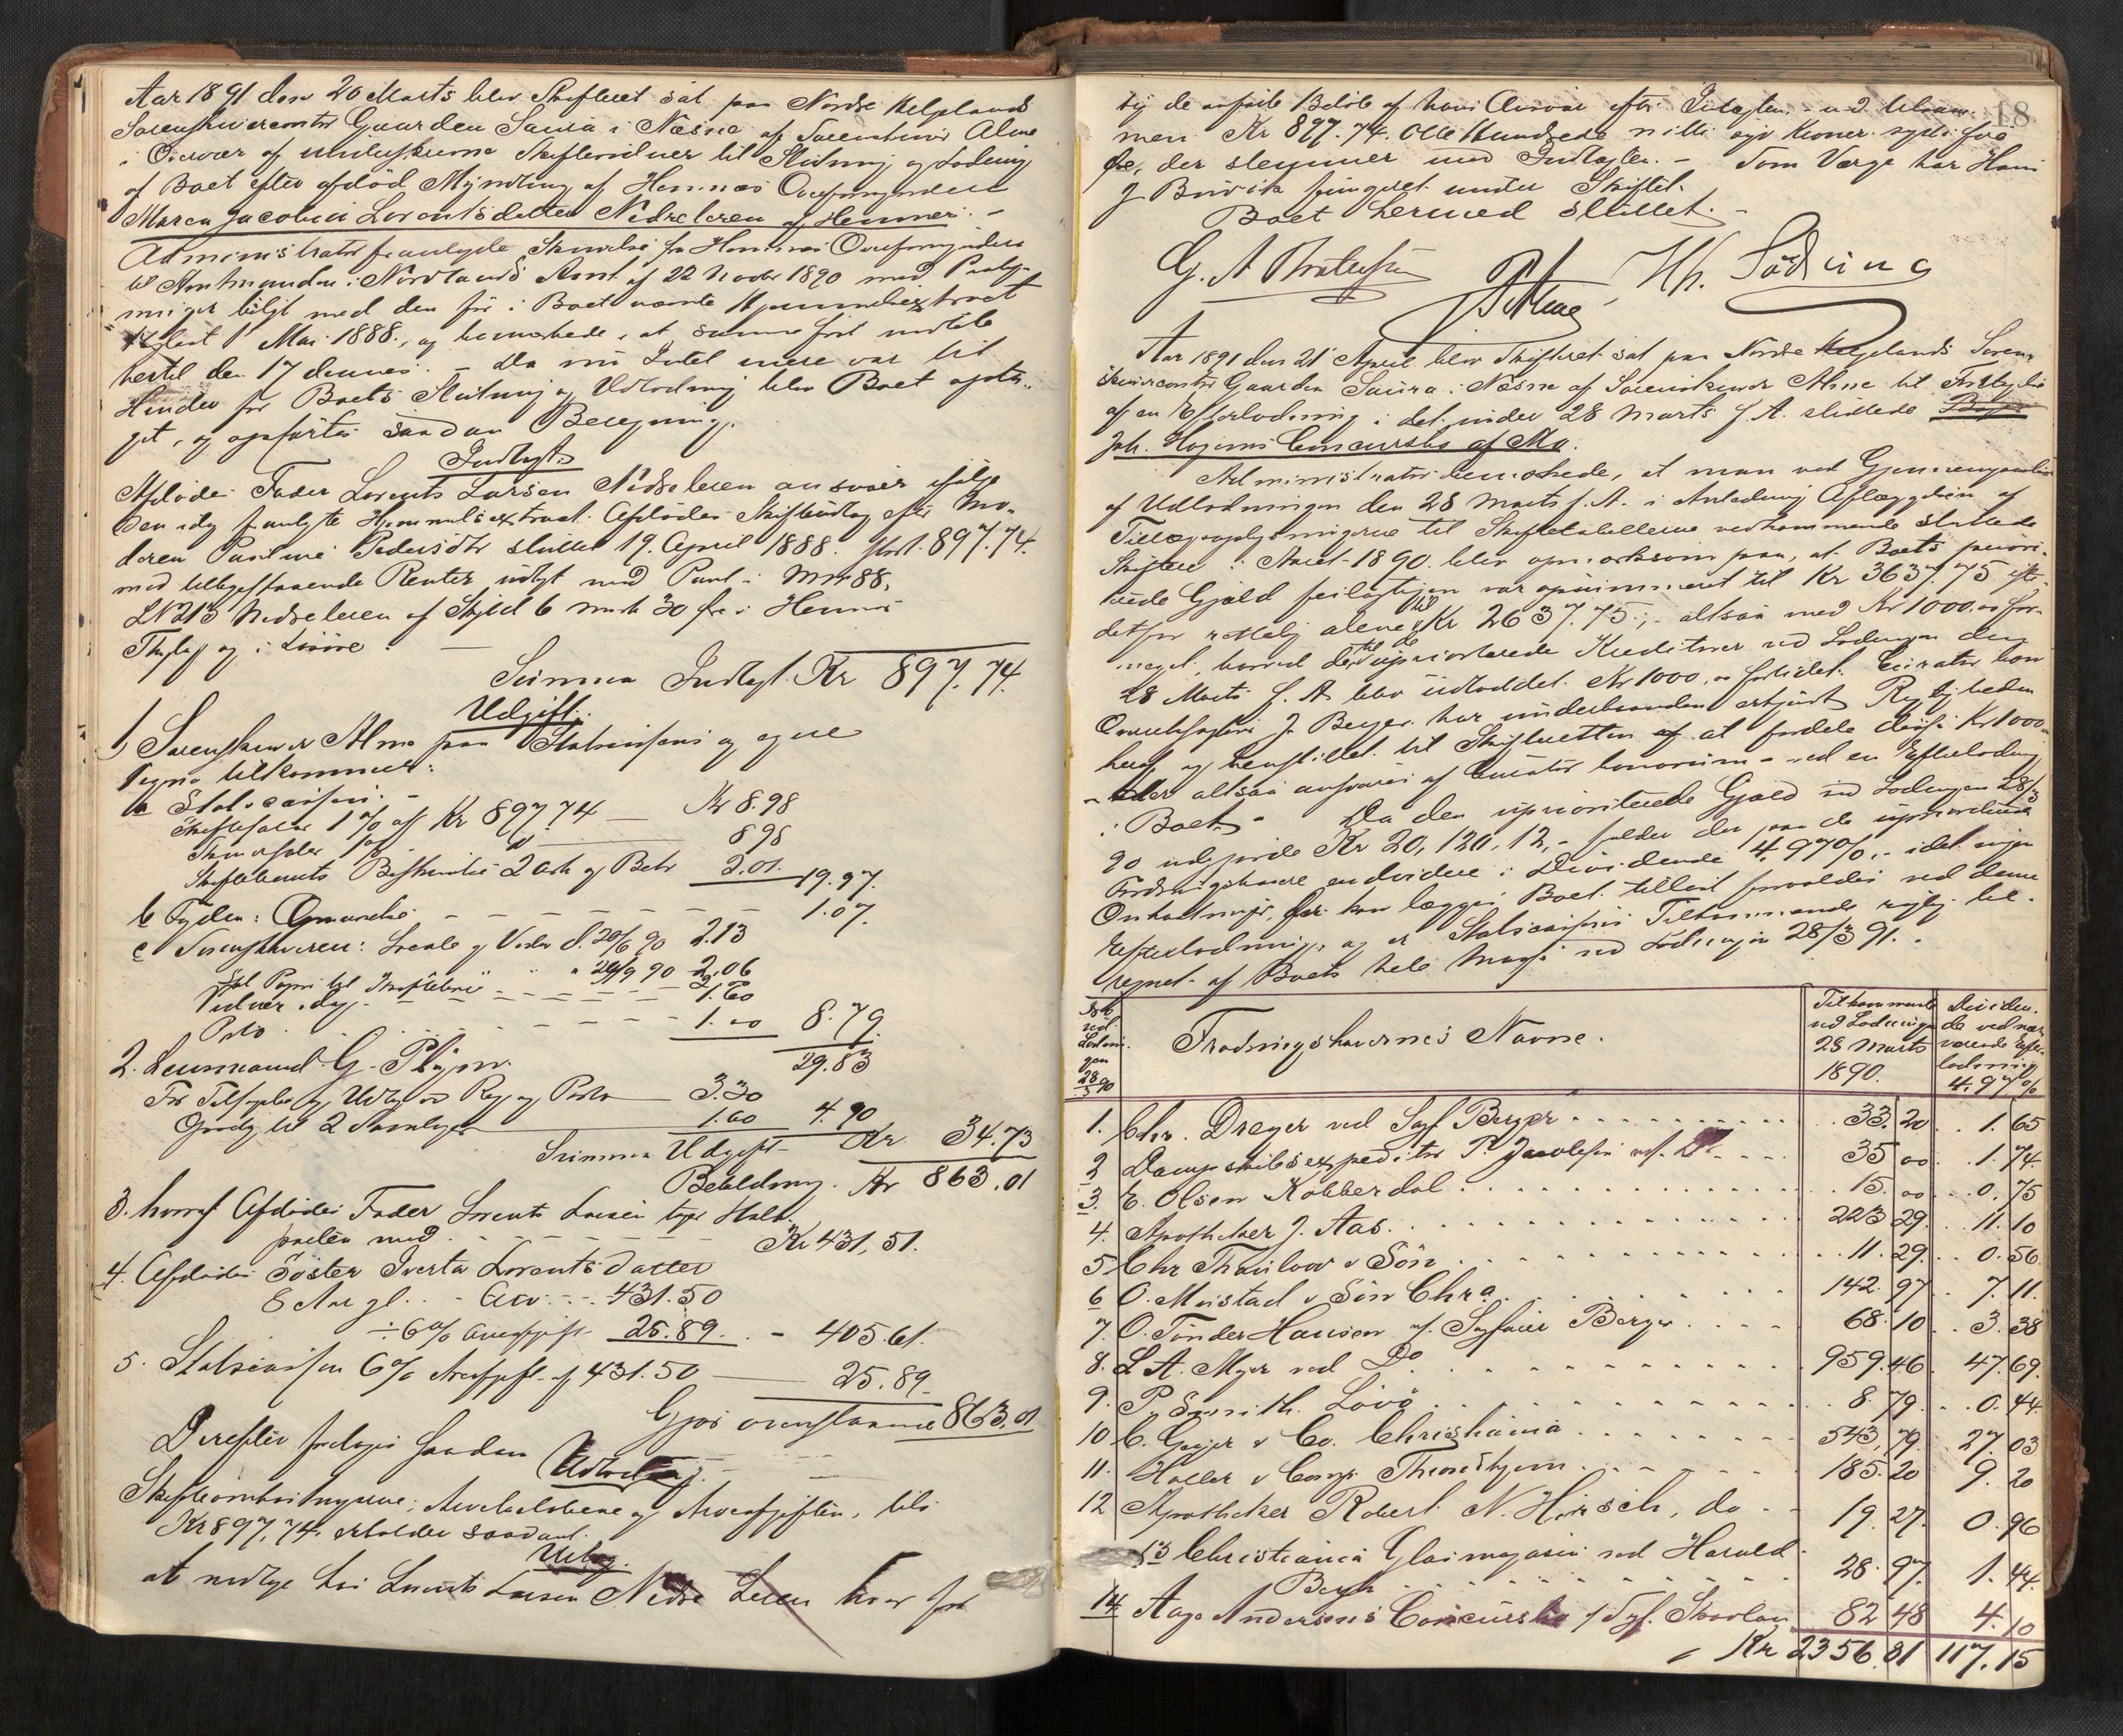 Aar 1891 den 20 Marts blev Skifteret sat paa Nordre Helgelands
Sorenskrivercontor Gaarden Saura i Næsne af Sorenskriver Alme
i Overvær af undertegnede Skiftevidner til Slutning og Lodning
af Boet efter afdød Myndling af Hemnæs Overformynderi
Maren Jacobine Lorentsdatter Nedreleren af Hemnes. -
Administrator fremlagde Skrivelse fra Hemnæs Overformynderi
til Amtmanden i Nordlands Amt af 22 Novbr 1890 med Paateg-
ninger bilagt med den før i Boet nævnte Hjemmelsextract
tinglæst 1 Mai 1888, og bemærkede, at samme først indløb
hertil den 17 dennes. - Da nu Intet mere var til
Hinder for Boets Slutning og Udlodning blev Boet opta-
get, og opførtes saadan Beregning.
Indtægt:
Afdødes Fader Lorents Larsen Nedreleren ansvarer ifølge
den idag fremlagte Hjemmelsextract Afdødes Skifteudlæg efter Mo-
deren Pauline Pedersdtr sluttet 19. April 1888. stort 897.74.
med tillægshavende Renter udlagt med Pant i Mno 88,
LN 213 Nedreleren af Skyld 6 mark 30 øre i Hemnes
Thglag og i Løsøre. —
Summa Indtægt. Kr 897.74.
Udgift:
1) Sorenskriver Alme paa Statscassens og egne
Vegne tilkommer:
a Statscassen: -
Skiftesalær 1% af Kr 897.74 — Kr 8.98
Skriversalær 1% " — 898
Skiftebrevets Beskrivelse 2 Ark og Bekr 2.01. 19.97.
b Fogden: - - - - - - 1.07.
c Sorenskriveren: Locale og Vidner d. 20/6 90 2.13
" " " 24/9 90 2.06
Stpl Papir til Skiftebrev - - - - 2.
Vidner idag - - - - - - 1.60
Porto - - - - - - 1.00 8.79.
29.83
2. Lensmand G. Plahn.
For Tilsigelse og Udlæg og Porto — 3.30
Godtg. til 2 — 1.60 4.90
Summa Udgift - Kr 34.73
Beholdning. Kr 863.01
3. hvoraf Afdødes Fader Lorents Larsen tager Halv-
parten med - - - - - - Kr 431,51.
4. Afdødes Søster Iverta Lorentsdatter
8 Aar gl. - Arv - - 431.50
÷ 6% Arveafgift 25.89. - 405.61.
5. Statscassen 6% Arveafgift af 431.50 — 25.89.
Gjør ovenstaaende 863.01
Derefter forlages saadan Udlodning. -
Skifteomkostningerne, Arvebeløbene og Arveafgiften, tils
Kr 897,74, erholder saadant
Udlæg.
at modtage hos Lorents Larsen Nedre Leren hver for
18
sig de anførte Beløb af hans Ansvar efter Indtægten. - ud tilsam-
men Kr 897.74. Otte Hundrede nitti syv Kroner sytti fire
Øre, der stemmer med Indtægten. - Som Værge har Hans
J Brivik fungeret under Skiftet.
Boet hermed sluttet. -
G. A J Alme Hh. Sødring
Aar 1891 den 21 April blev Skifteret sat paa Nordre Helgelands Soren-
skrivercontor Gaarden Saura i Næsne af Sorenskriver Alme til Foretagelse
af en Efterlodning i det under 28 Marts f. A. sluttede Bo
Joh. Hagens Concursbo af Mo.
Administrator bemærkede, at man ved Gjennemgaaelse
af Udlodningen den 28 Marts f. A. i Anledning Aflæggelsen af
Tillægsopgjørelserne til Skiftetabellerne vedkommende sluttede
Skifter i Aaret 1890. blev opmærksom paa, at Boets priori-
terede Gjæld feilagtigen var opsummeret til Kr 3637.75 iste-
detfor rettelig alene til Kr 2637.75; - altsaa med Kr 1000.00 for-
meget, hvorved der til de upriorterede Kreditorer ved Lodningen den
28 Marts f. A. blev udloddet Kr 1000.00 for lidet. Curator bon
Overretssagfører J Berger har imidlertid erkjendt Rigtigheden
heraf og henstillet til Skifteretten at fordele disse Kr 1000.
- der altsaa ansvares af Curator bonorum - ved en Efterlodning
i Boet. - Da den uprioriterede Gjæld ved Lodningen 28/3
90 udgjorde Kr 20,120,12, - falder der paa de uprioriterede
Fordringshavere endvidere i Dividende 4.97%, - idet ingen
Omkostninger kan lægges Boet tillast forvoldes ved denne
Efterlodning, og er Statscassens Tilkommende rigtig be-
regnet af Boets hele Masse ved Lodningen 28/3 91. -
No ved Lodnin-gen 28/3 90 Fordringshavernes Navne. Tilkommende ved Lodningen 28 Marts 1890. Dividen-de ved nær-værende Efter-lodning 4.97%
1. Chr. Dreyer ved Sagf Berger - - - 33.20 1.65
2 Dampskibsexpeditør P Jacobsen ved Do - - - 35 00 1.74
3. E. Olsen Kobberdal - - - 15. 00 0.75
4. Apotheker J. Aas. - - - 223 29. 11.10
5 Chr Thaulow & Søn - - - 11.29. 0.56
6 O. Mustad & Søn Chra. - - - 142.97 7.11.
7. O. Tønder Hansen v. Sagfører Berger - - - 68.10 3.38
8. L A. Myer ved Do - - - 959.46 47.69.
9. P. Smith. Lovø - - - 8.79. 0.44
10 C. Geijer & Co. Christiania - - - 543.79. 27.03
11. Huitfeldt & Comp. Throndhjem - - - 185.20 9.20
12 Apotheker Robert N. Hirsch, do - - 19.27. 0.96
13 Christiania Glasmagasin ved Harald
Bergh - - - 28.97. 1.44.
14 Aage Andersens Concursbo v/ Sagf. Skavlan 82 48 4.10
Kr 2356.81 117.15